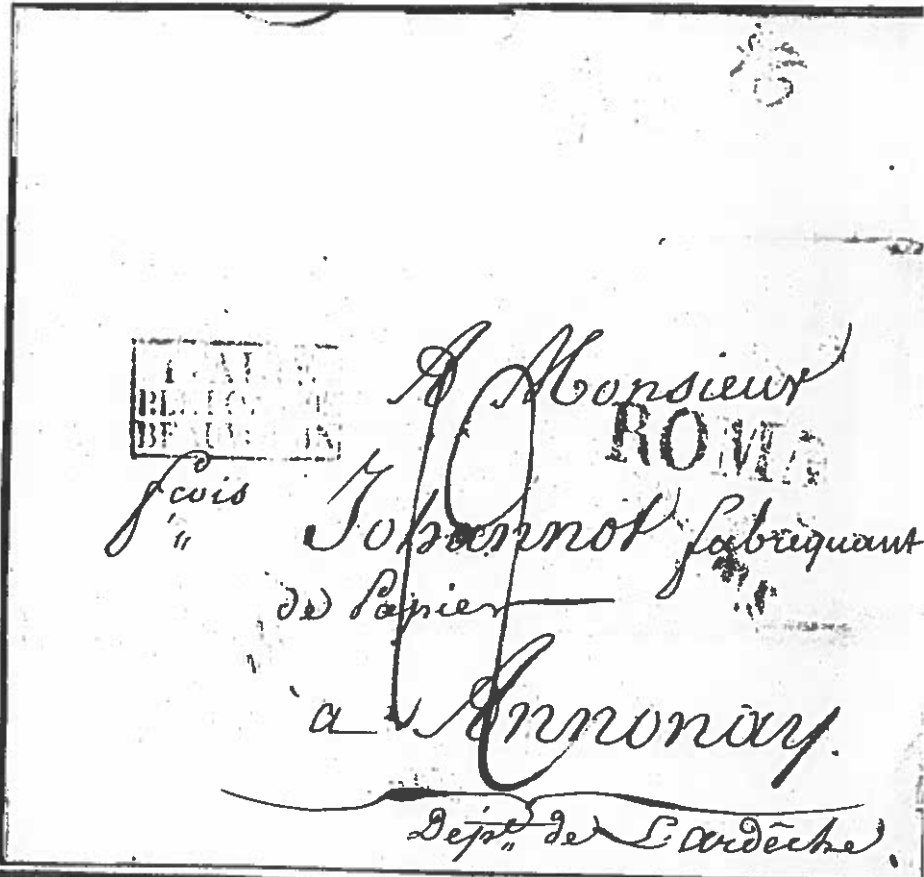 A Monsieur
ROMA
fcois Johannot fabriquant
de Papier
a Annonay.
Dept de L'ardêche